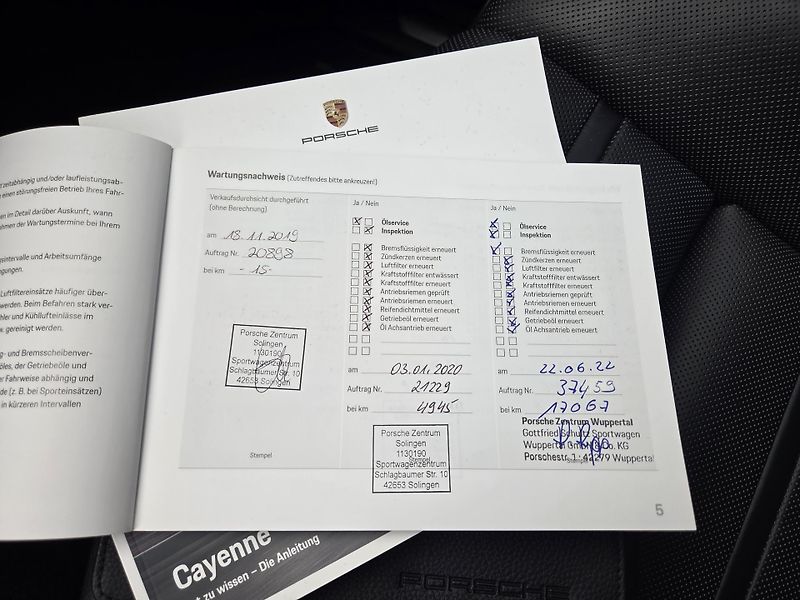 PORSCHE
t zeitabhängig und/oder laufleistungsab-
e einen störungsfreien Betrieb Ihres Fahr-
en im Detail darüber Auskunft, wann
ahmen der Wartungstermine bei Ihrem
gsintervalle und Arbeitsumfänge
ngungen.
Luftfiltereinsätze häufiger über-
werden. Beim Befahren stark ver-
hler und Kühllufteinlässe im
w. gereinigt werden.
ng- und Bremsscheibenver-
öles, der Getriebeöle und
er Fahrweise abhängig und
de (z. B. bei Sporteinsätzen)
n in kürzeren Intervallen
Wartungsnachweis (Zutreffendes bitte ankreuzen!)
Verkaufsdurchsicht durchgeführt
(ohne Berechnung)
am 18.11.2019
Auftrag Nr. 20898
bei km -15-
Porsche Zentrum
Solingen
1130190
Sportwagenzentrum
Schlagbaumer Str. 10
42653 Solingen
Stempel
Ja / Nein
Ölservice
Inspektion
Bremsflüssigkeit erneuert
Zündkerzen erneuert
Luftfilter erneuert
Kraftstofffilter entwässert
Kraftstofffilter erneuert
Antriebsriemen geprüft
Antriebsriemen erneuert
Reifendichtmittel erneuert
Getriebeöl erneuert
Öl Achsantrieb erneuert
am 03.01.2020
Auftrag Nr. 21229
bei km 4945
Porsche Zentrum
Solingen
1130190
Sportwagenzentrum
Stempel
Schlagbaumer Str. 10
42653 Solingen
Ja / Nein
Ölservice
Inspektion
Bremsflüssigkeit erneuert
Zündkerzen erneuert
Luftfilter erneuert
Kraftstofffilter entwässert
Kraftstofffilter erneuert
Antriebsriemen geprüft
Antriebsriemen erneuert
Reifendichtmittel erneuert
Getriebeöl erneuert
Öl Achsantrieb erneuert
am 22.06.22
Auftrag Nr. 37459
bei km 17067
Porsche Zentrum Wuppertal
Gottfried Schultz Sportwagen
Wuppertal GmbH & Co. KG
Porschestr. 1 · 42279 Wuppertal
Stempel
5
Cayenne
t zu wissen – Die Anleitung
PORSCHE